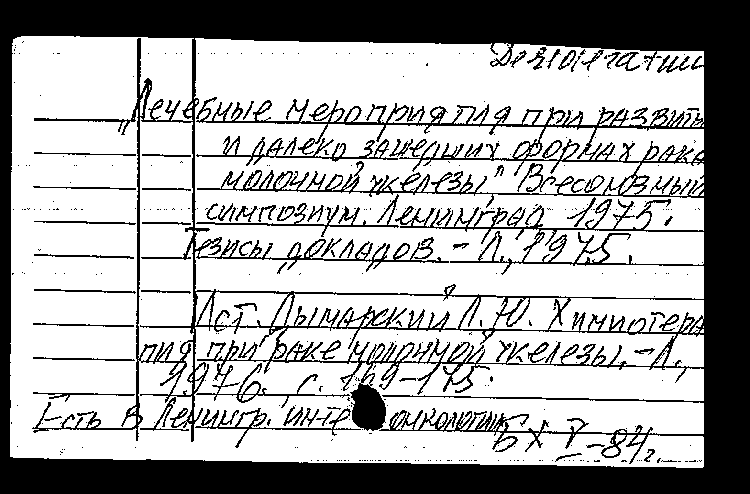 Desideratum
„Лечебные мероприятия при развиты
и далеко зашедших формах рака
молочной железы" Всесоюзный
симпозиум. Ленинград, 1975.
Тезисы докладов. – Л., 1975.
Ист. Дымарский Л.Ю. Химиотера
пия при раке молочной железы. – Л.,
1976. с. 169-175.
Есть в Ленингр. ин-те онкологии
Б X V-84г.